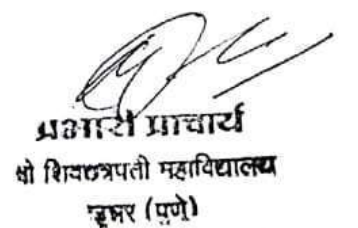 प्रभारी प्राचार्य
श्री शिवछत्रपती महाविद्यालय
(पुणे)